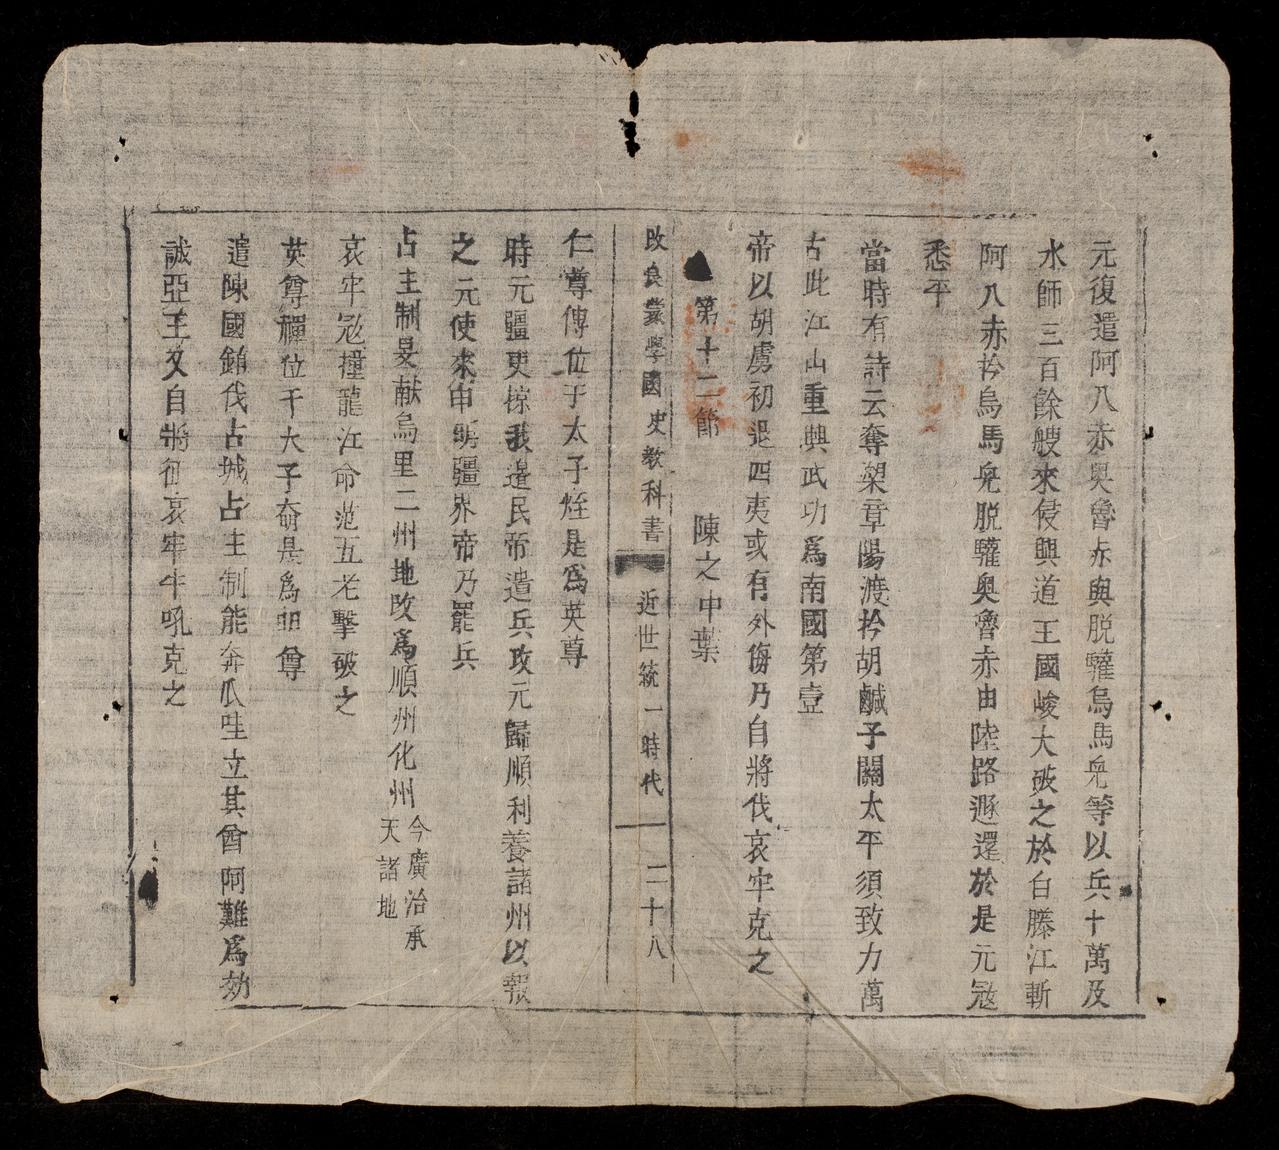 元復遣阿八赤奥魯赤與脫驩烏馬兒等以兵十萬及
水師三百餘艘來侵興道王國峻大破之於白籐江斬
阿八赤衿烏馬兒脫驩奥魯赤由陸路遯還於是元寇
悉平
當時有詩云奪槊章陽渡衿胡鹹子關太平須致力萬
古此江山重興武功爲南國第壹
帝以胡虜初退四夷或有外侮乃自將伐哀牢克之
第十二節 陳之中葉
改良蒙學國史教科書 近世統一時代 二十八
仁尊傳位于太子烇是爲英尊
時元疆吏掠我邉民帝遣兵攻元歸順利養諸州以報
之元使來申明疆界帝乃罷兵
占主制旻献烏里二州地改爲順州化州今廣治承天諸地
哀牢寇撞龍江命范五老擊破之
英尊禪位于太子奣是爲明尊
遣陳國䤈伐占城占主制能奔爪哇立其酋阿難爲効
誠亞王又自將征哀牢牛吼克之